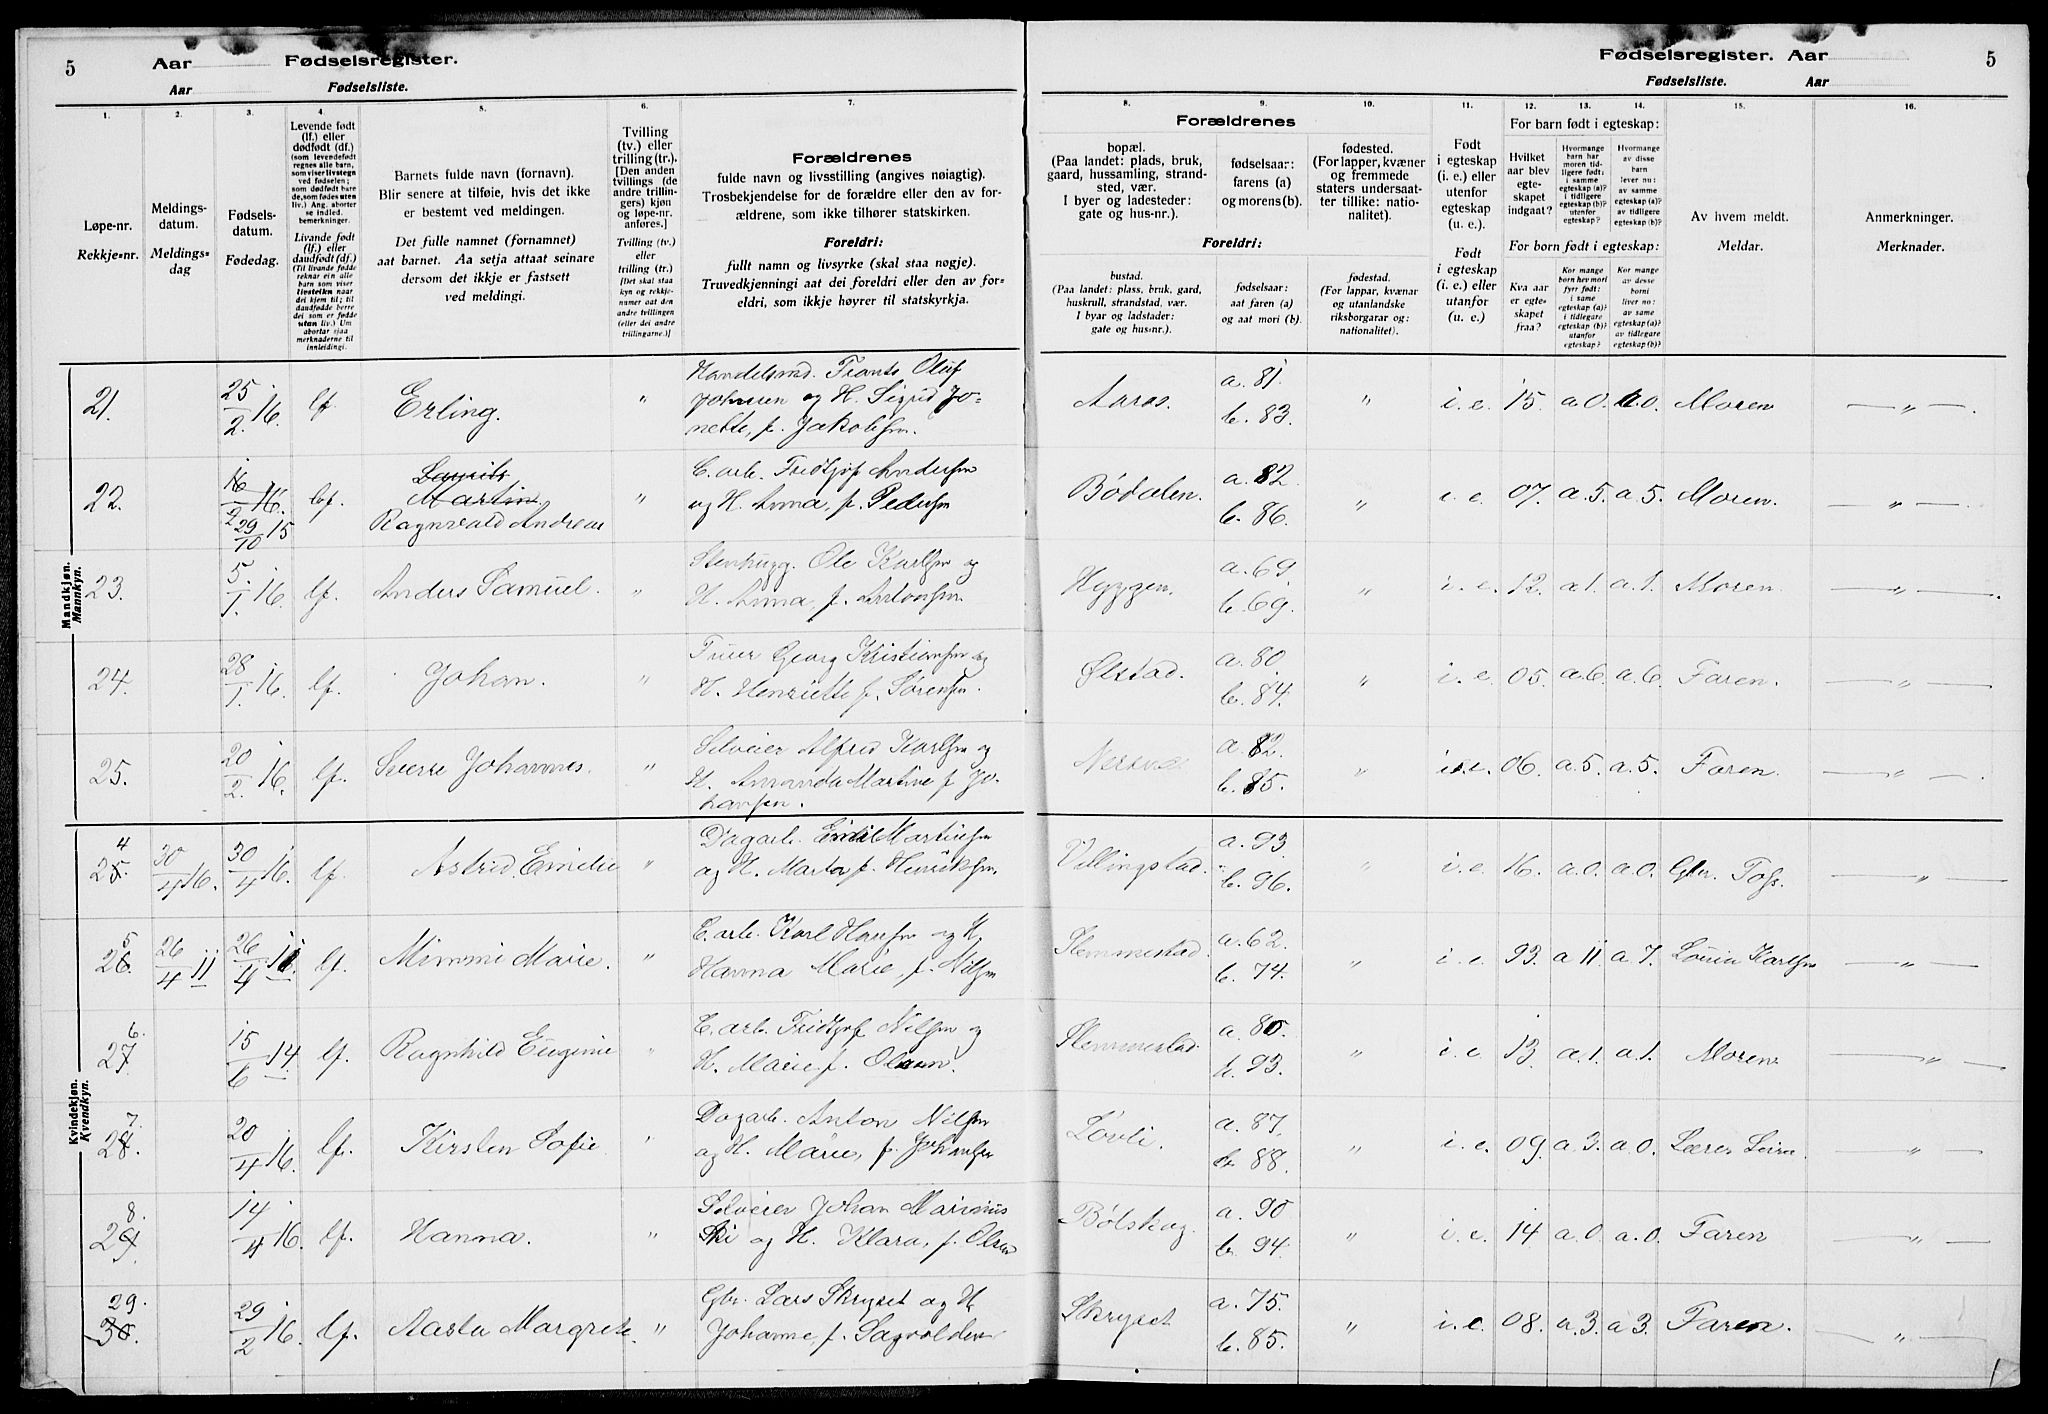 5
Aar
Fødselsregister.
Aar
Fødselsliste.
Fødselsregister. Aar
5
Fødselsliste.
Aar
1.
Løpe-nr.
Rekkje-nr.
2.
Meldings-
datum.
Meldings-
dag
3.
Fødsels-
datum.
Fødedag.
4.
Levende født
(lf.) eller
dødfødt (df.)
(som levendefødt
regnes alle barn,
som viser livstegn
ved fødselen;
som dødfødt bare
de, som fødes uten
liv.) Ang. aborter
se indled.
bemerkninger.
Livande født
(lf.) eller
daudfødt (df.)
(Til livande fødde
reknar ein alle
barn som viser
livsteikn naar
dei kjem til; til
daudfødde berre
dei som er fødde
utan liv.) Um
abortar sjaa
merknaderne til
innleidingi.
5.
Barnets fulde navn (fornavn).
Blir senere at tilføie, hvis det ikke
er bestemt ved meldingen.
Det fulle namnet (fornamnet)
aat barnet. Aa setja attaat seinare
dersom det ikkje er fastsett
ved meldingi.
6.
Tvilling
(tv.) eller
trilling (tr.).
[Den anden
tvillings (de
andre trillin-
gers) kjøn
og løpe-nr.
anføres.]
Tvilling (tv.)
eller
trilling (tr.)
[Det skal staa
kyn og rekkje-
numer aat den
andre tvillingen
(eller dei andre
trillingarne.)]
7.
Forældrenes
fulde navn og livsstilling (angives nøiagtig).
Trosbekjendelse for de forældre eller den av for-
ældrene, som ikke tilhører statskirken.
Foreldri:
fullt namn og livsyrke (skal staa nøgje).
Truvedkjenningi aat dei foreldri eller den av for-
eldri, som ikkje høyrer til statskyrkja.
8.
9.
10.
Forældrenes
bopæl.
(Paa landet: plads, bruk,
gaard, hussamling, strand-
sted, vær.
I byer og ladesteder:
gate og hus-nr.).
fødselsaar:
farens (a)
og morens (b).
fødested.
(For lapper, kvæner
og fremmede
staters undersaat-
ter tillike: natio-
nalitet).
Foreldri:
bustad.
(Paa landet: plass, bruk, gard,
huskrull, strandstad, vær.
I byar og ladstader:
gate og hus-nr.).
fødselsaar:
aat faren (a)
og aat mori (b).
fødestad.
(For lappar, kvænar
og utanlandske
riksborgarar og:
nationalitet).
11.
Født
i egteskap
(i. e.) eller
utenfor
egteskap
(u. e.).
Født
i egteskap
(i. e.) eller
utanfor
(u. e.).
12. 13. 14.
For barn født i egteskap:
Hvilket
aar blev
egte-
skapet
indgaat?
Hvormange
barn har
moren tid-
ligere født:
i samme
egteskap (a)?
i tidligere
egteskap (b)?
utenfor
egteskap?
Hvormange
av disse
barn
lever nu:
av samme
egteskap (a)?
av tidligere
egteskap (b)?
For born født i egteskap:
Kva aar
er egte-
skapet
fraa?
Kor mange
born hev mori
fyrr født:
i same
egteskap (a)?
i tidlegare
egteskap (b)?
utanfor
egteskap?
Kor mange
av desse
borni
liver no:
av same
egteskap (a)?
av tidlegare
egteskap (b)?
15.
Av hvem meldt.
Meldar.
16.
Anmerkninger.
Merknader.
Mandkjøn.
Mannkyn.
21. 25/2 16. lf. Erling. " Handelsmd. Frants Oluf
Johnsen og H. Sigrid Jo-
nette, f. Jakobsen. Aaros. a. 81. b. 83. " i. e. 15. a.0. a.0. Moren — " —.
22. 16/2 16. lf. Laurits
Martin
Ragnvald Andreas
29/10 15
" C. arb. Fridtjof Andersen
og H. Anna, f. Pedersen Bødalen. a. 82 b. 86. " i. e. 07. a.5. a.5. Moren. — " —
23. 5/1. 16. lf. Anders Samuel. " Stenhugg. Ole Karlsen og
H. Anna, f. Antonsen. Hyggen. a. 69. b. 69. " i. e. 12. a.1. a.1. Moren — " —.
24. 28/1. 16. lf. Johan. " Georg Kristiansen og
H. Henriette f. Sørensen. Ølstad. a. 80. b. 84. " i. e. 05. a.6. a.6. Faren. — " —
25. 20/2. 16. lf. Sverre Johannes. " Selveier Alfred Karlsen og
H. Amanda Martine f. Jo-
hansen. a. 82. b. 85. " i. e. 06. a.5. a.5. Faren. — " —
Kvindekjøn.
Kvendkyn.
4
25. 30/4 16. 30/4 16. lf. Astrid Emilie " Dagarb. Emil Martinsen
og H. Marta f. Henriksen. Villingstad. a. 93 b. 96. " i. e. 16. a.0. a.0. Gbr. Foss. — " —
5
26. 26/4 11 26/4 11. lf. Mimmi Marie. " C. arb. Karl Hansen og H.
Hanna Marie, f. Nilsen Slemmestad. a. 62. b. 74. " i. e. 93. a 11. a. 7. Karlsen — " —
6.
27. 15/6 14 lf. Ragnhild Eugenie " C. arb. Fridtjof Nilsen og
H. Marie f. Olsen. Slemmestad a. 80. b. 93. " i. e. 13. a.1. a.1. Moren — " —
7.
28. 20/4 16. lf. Kirsten Sofie. " Dagarb. Anton Nilsen
og H. Marie, f. Johansen Løvli. a. 87. b. 88. " i. e. 09. a.3. a.0. Lærer — " —
8.
29. 14/4 16. lf. Hanna. " Selveier Johan Marinius
Ski og H. Klara, f. Olsen Bølskog. a. 90 b. 94. " i. e. 14. a.0. a.0. Faren — " —
29.
30. 29/2 16. lf. Aasta Margrete. " Gbr. Lars Skryset og H.
Johanne, f. Sagvolden Skryset a. 75. b. 85. " i. e. 08. a.3. a 3. Faren. — " —